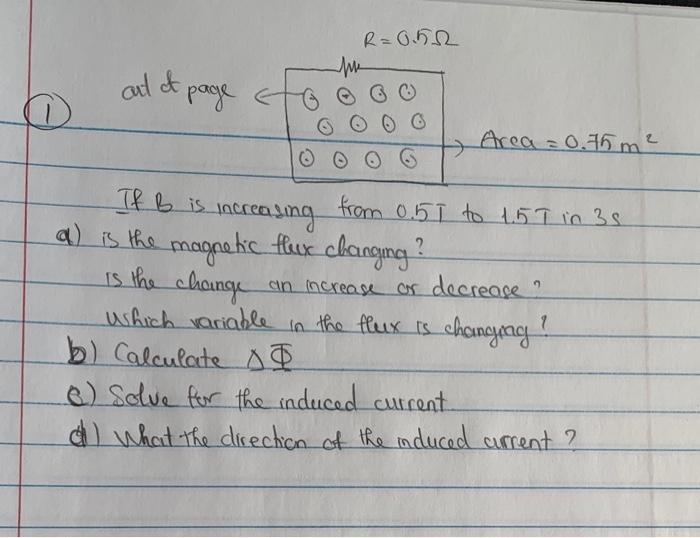 R = 0.5Ω
out of page
①
Area = 0.75 m²
If B is increasing from 0.5T to 1.5T in 3s
a) is the magnetic flux changing?
is the change an increase or decrease?
which variable in the flux is changing?
b) Calculate ΔΦ
c) Solve for the induced current
d) What the direction of the induced current?